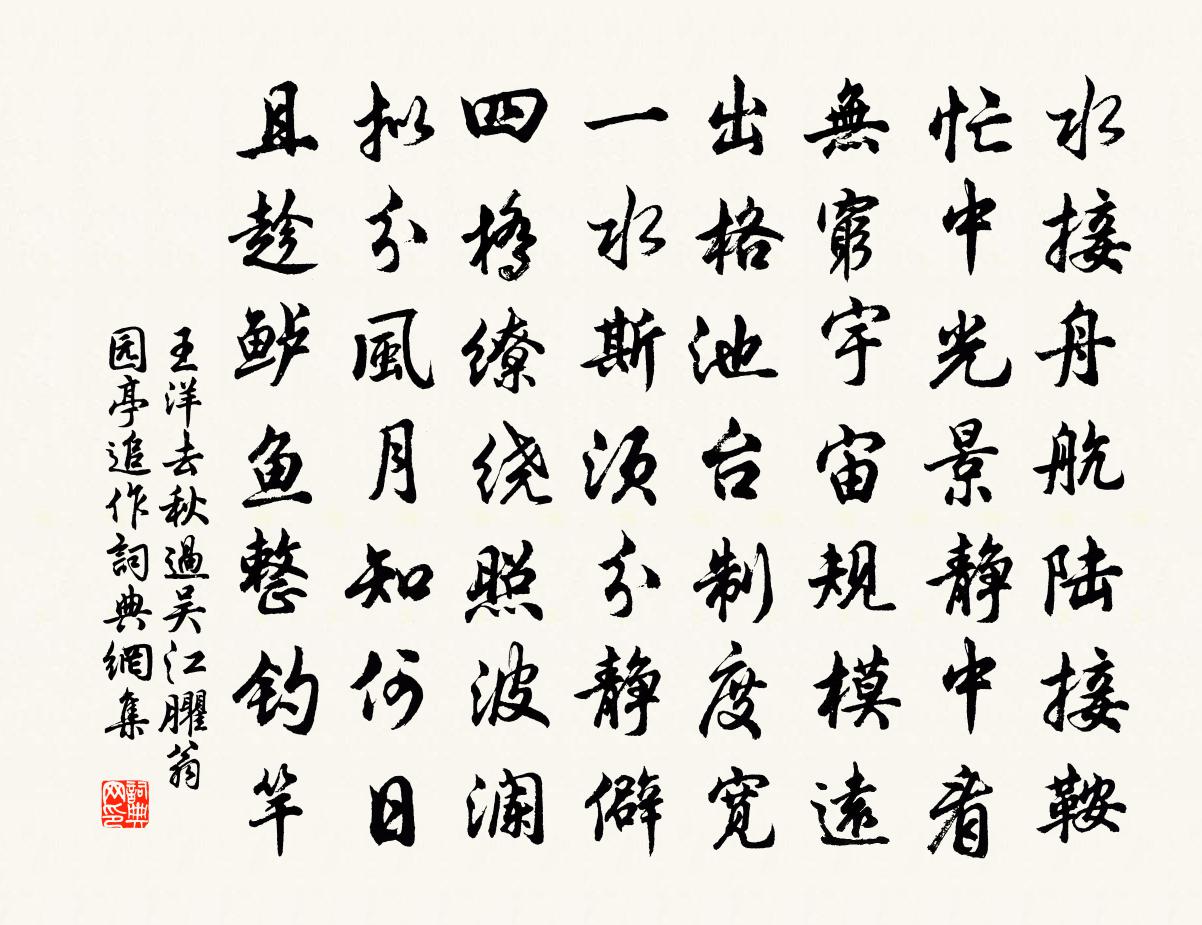 水接舟航陆接鞍
忙中光景静中看
無窮宇宙規模遠
出格池台制度寛
一水斯须分静僻
四橋缭绕照波澜
拟分風月知何日
且趁鲈魚整钓竿
王洋去秋過吴江臞翁
园亭追作詞典網集
詞典网印